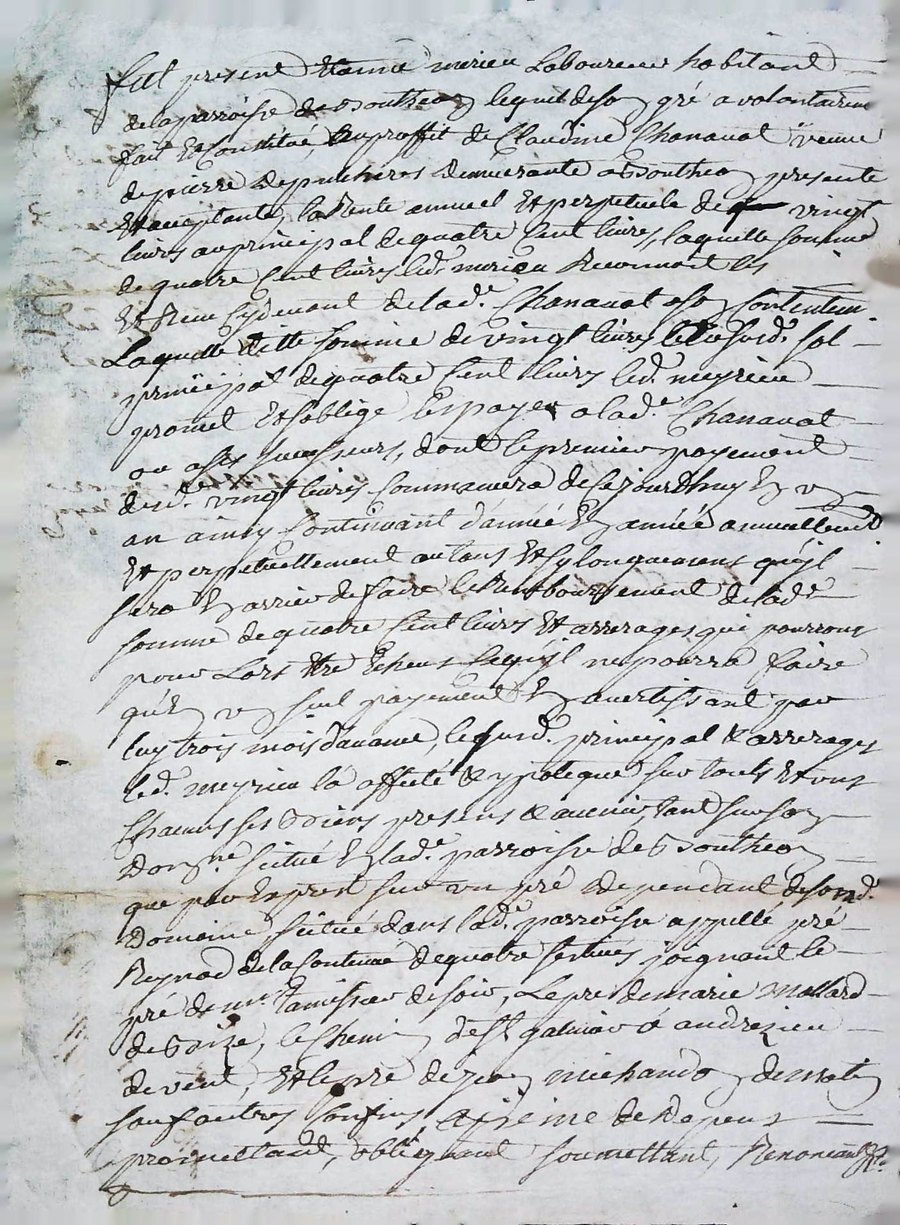 fut present Etienne mirieu Laboureur habitant
de la parroisse de Boutheon lequel de son gré a volontairem
fait et Constitué, au proffit de Claudine Chanavat veuve
de pierre Depulchieres demeurante a Boutheon presente
et acceptante, la Rente annuel et perpetuele de vingt
livres au principal de quatre Cent livres, laquelle somme
de quatre Cent livres led. mirieu Reconnoit les
et Receu Cydevant de lad.e Chanavat a son Contentem.
Laquelle ditte somme de vingt livres les susd. sol
principal de quatre Cent livres led. meyrieu
promet et soblige les payer a lad.e Chanavat
ou a ses successeurs, dont le premier payement
desd. vingt livres Commancera de Cejourdhuy En un
an ainsy Continuant d'année En année annuellement
et perpetuellement autant et sy longuement qu'il
sera En arriere de faire le Remboursement de lad.e
somme de quatre Cent livres et arrerages qui pourront
pour Lors Etre Echeus Lequel il ne pourra faire
qu'En un seul payement En avertissant par
luy trois mois d'avance, lequel susd. principal & arrerages
led. meyrieu la affecté & ypotequé sur touts et uns
Chacuns ses Biens presens & avenir, tant sur son
Dom.ne situé En lad.e parroisse de Boutheon
que par Expres sur un pré Dependant de sond.
Domaine situé dans lad.e parroisse appellé pré
Reynod de la Contenue de quatre septiers joignant le
pré de m.r Tamisier de soir, Le pré de marie Mollard
de Bize, le Chemin de St galmier a andrezieu
de vent, et le pré de jean michaudon de matin
sauf autres Confins, a peine de Depens
promettant, obligeant soumettant, Renonceant &c.